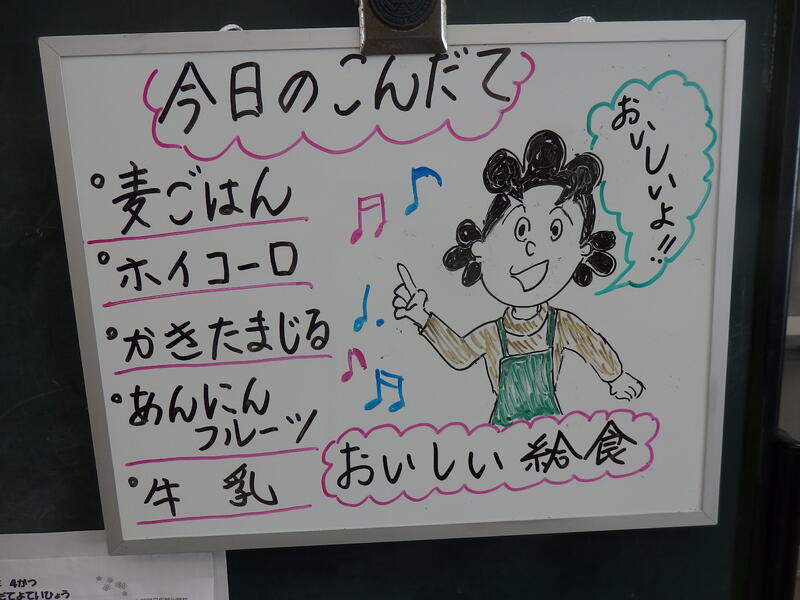 今日のこんだて
麦ごはん
ホイコーロ
かきたまじる
あんにん
フルーツ
牛乳
おいしいよ!!
おいしい給食
4がつ
だてよていひょう